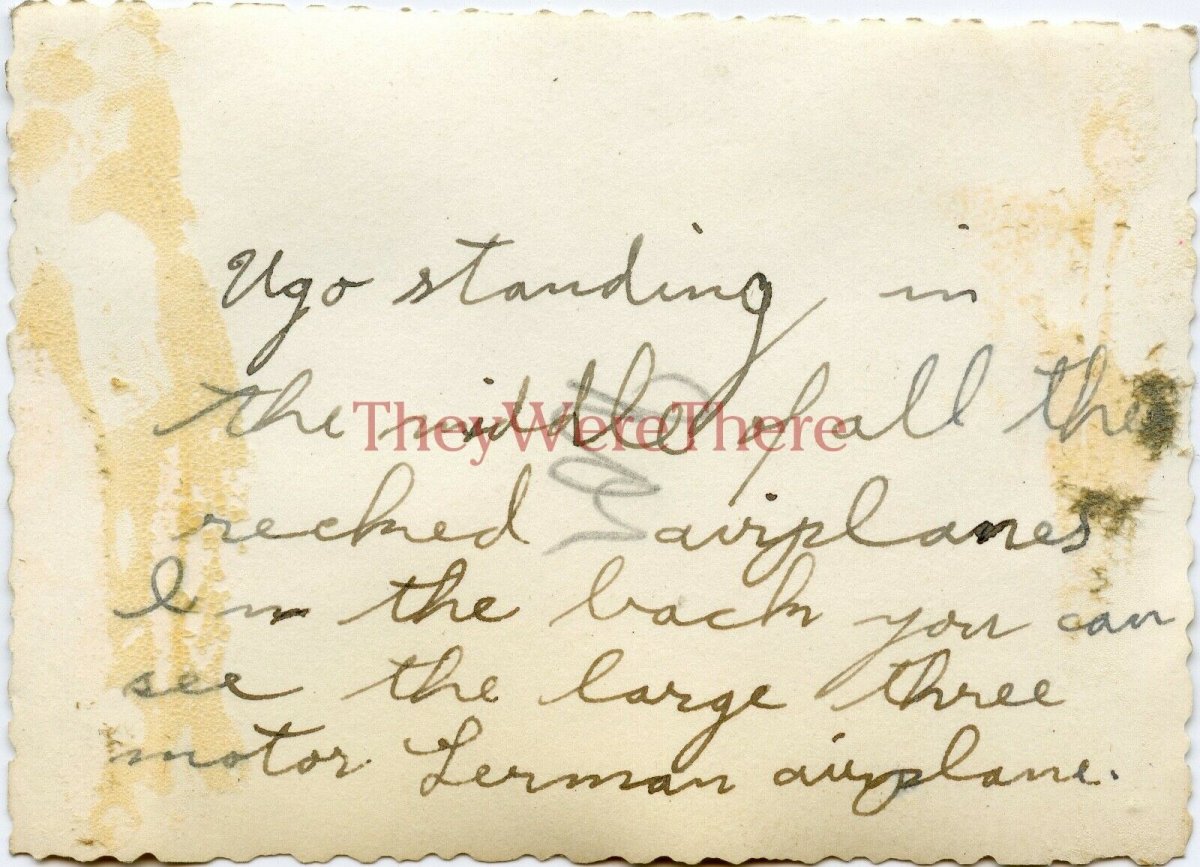 Ugo standing in
the middle of all the
TheyWereThere
recked airplanes
In the back you can
see the large three
motor German airplane.